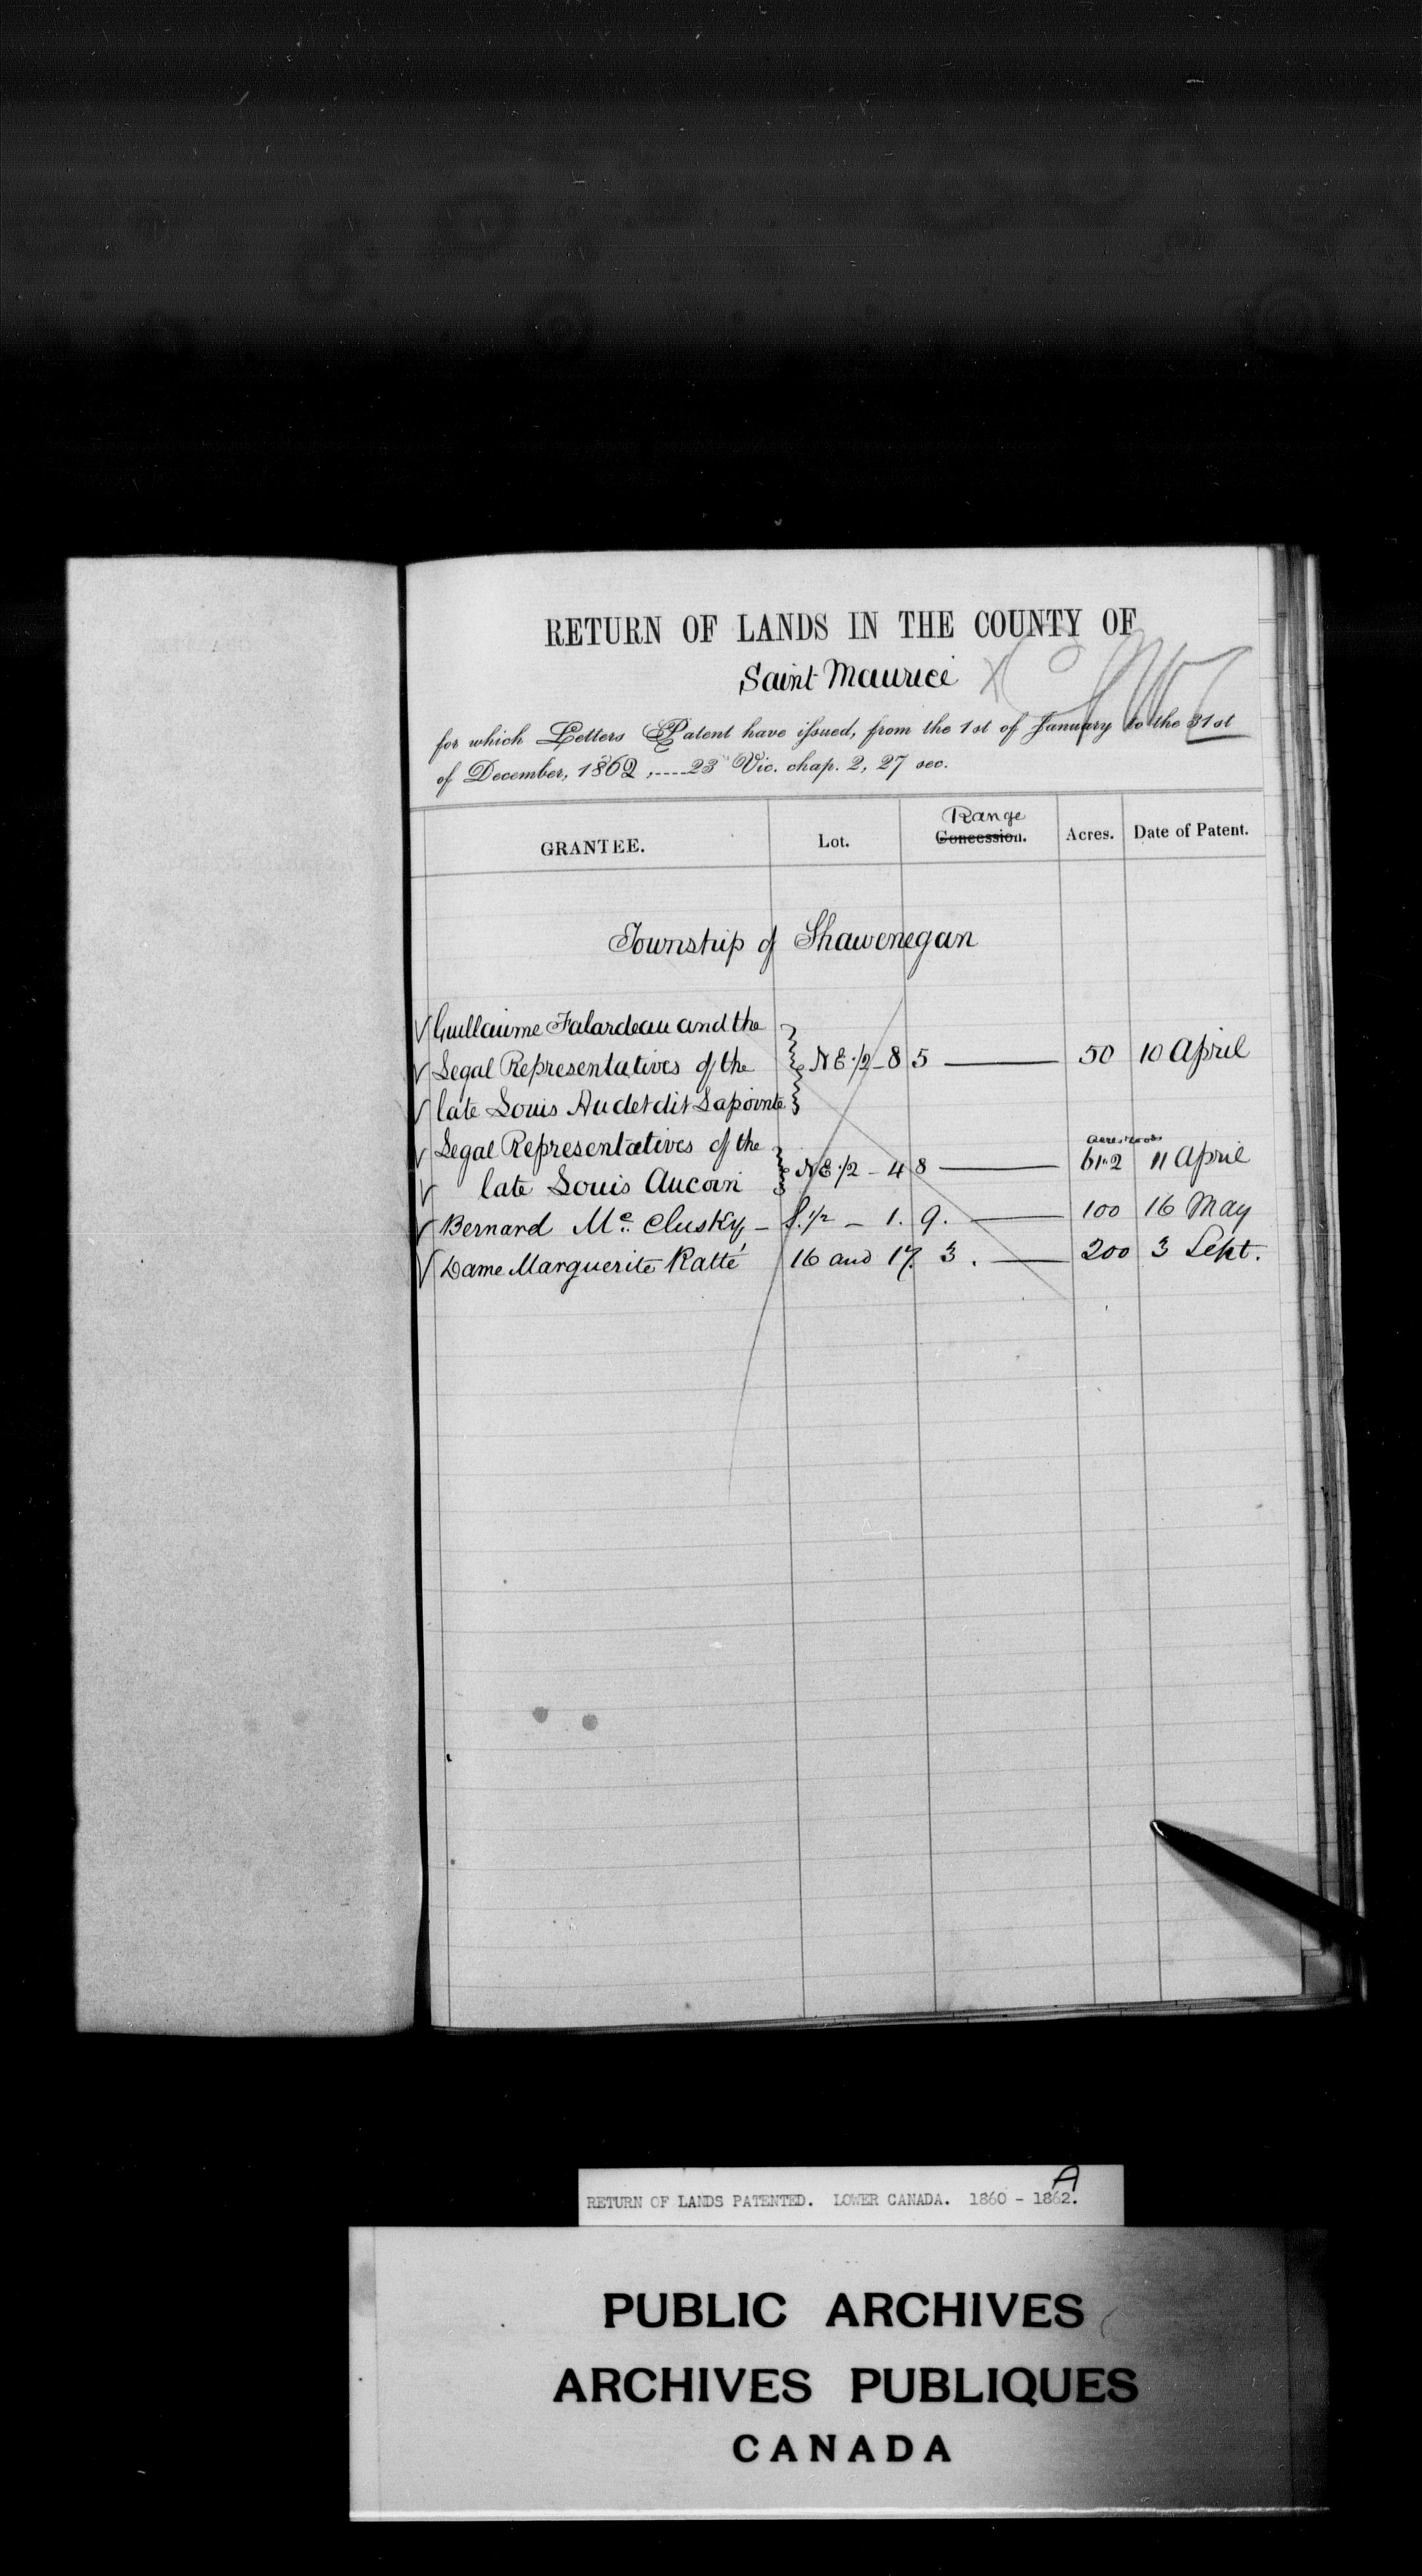 RETURN OF LANDS IN THE COUNTY OF
Saint Maurice
for which Letters Patent have issued, from the 1st of January to the 31st
of December, 1862, ....23 Vic. chap. 2, 27 sec.
Range
GRANTEE. Lot. Concession. Acres. Date of Patent.
Township of Shawenegan
Guillaume Falardeau and the
Legal Representatives of the N E 1/2 - 8 5 50 10 April
late Louis Audet dit Lapointe
Legal Representatives of the acres roods
late Louis Aucoin N E 1/2 - 4 8 61.2 11 April
Bernard Mc Clusky - S. 1/2 - 1. 9. 100 16 May
Dame Marguerite Ratté 16 and 17. 3. 200 3 Sept.
A
RETURN OF LANDS PATENTED. LOWER CANADA. 1860 - 1862.
PUBLIC ARCHIVES
ARCHIVES PUBLIQUES
CANADA